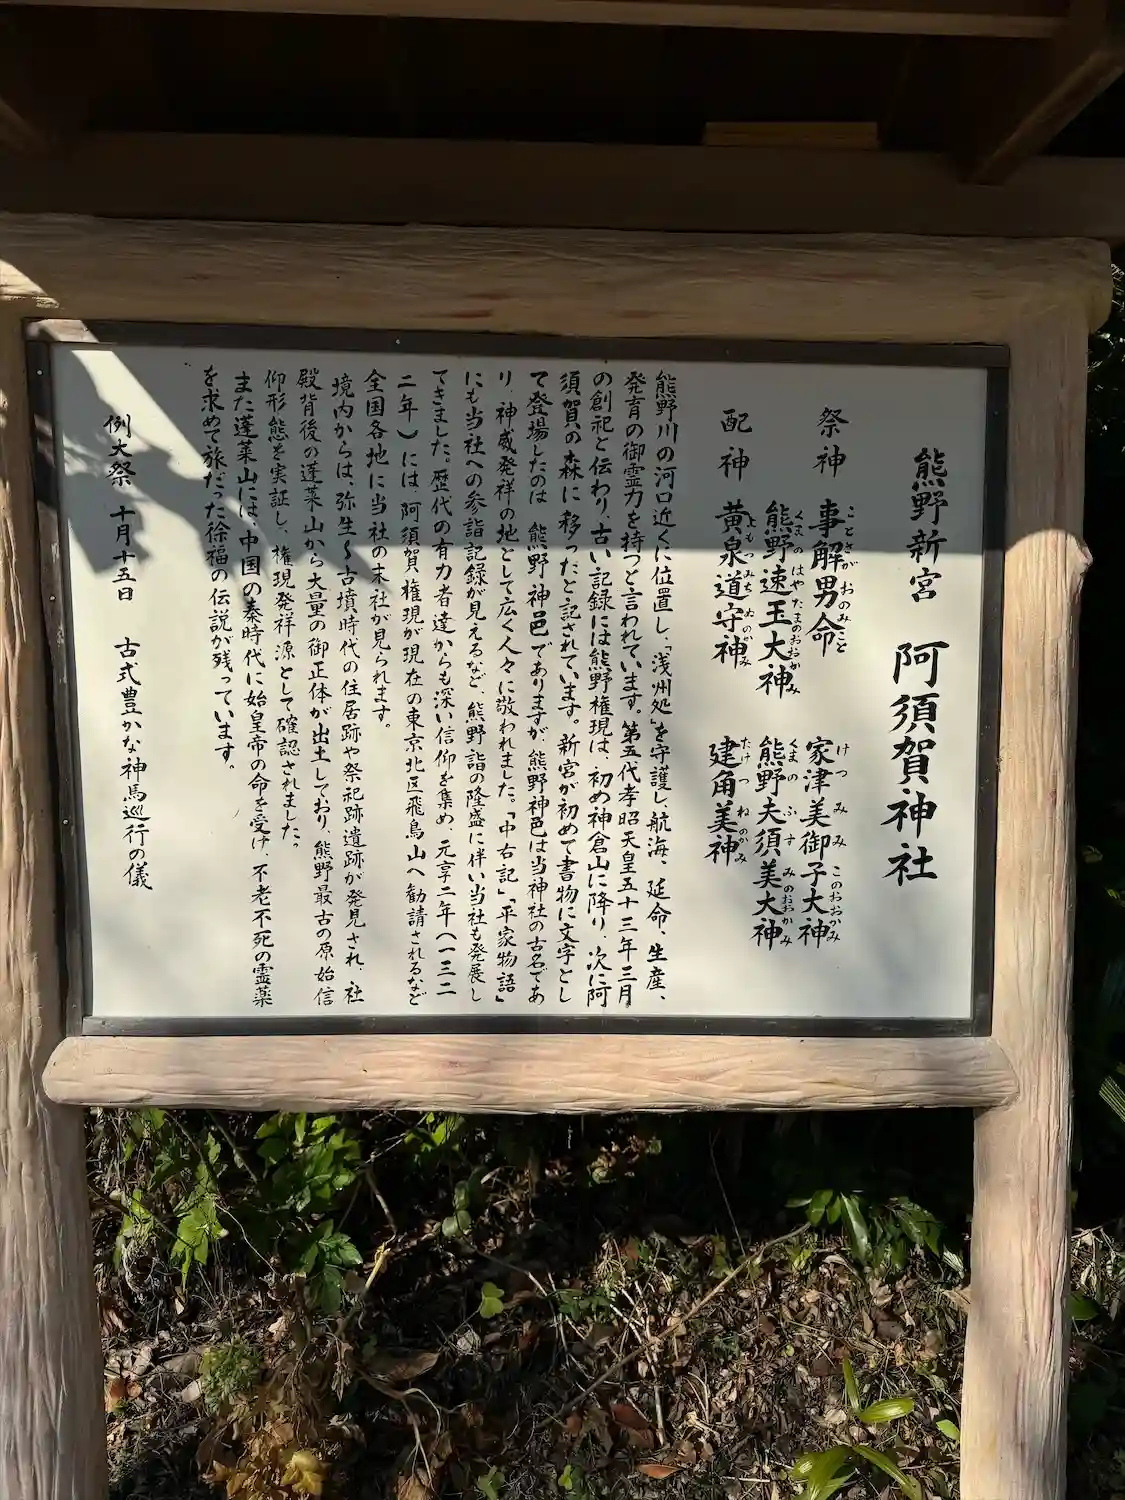 熊野新宮　阿須賀神社
祭神　事解男命　家津美御子大神
ことさかおのみこと　けつみみこのおおかみ
熊野速玉大神　熊野夫須美大神
くまのはやたまのおおかみ　くまのふすみのおおかみ
配神　黄泉道守神　建角美神
よもつみちもりのかみ　たけつねのかみ
熊野川の河口近くに位置し、「浅州処」を守護し、航海、延命、生産、
発育の御霊力を持つと言われています。第五代孝昭天皇五十三年三月
の創祀と伝わり、古い記録には熊野権現は、初め神倉山に降り、次に阿
須賀の森に移ったと記されています。新宮が初めて書物に文字とし
て登場したのは　熊野神邑でありますが、熊野神邑は当神社の古名であ
り、神威発祥の地として広く人々に敬われました。「中右記」「平家物語」
にも当社への参詣記録が見えるなど、熊野詣の隆盛に伴い当社も発展し
てきました。歴代の有力者達からも深い信仰を集め、元亨二年（一三二
二年）には、阿須賀権現が現在の東京北区飛鳥山へ勧請されるなど
全国各地に当社の末社が見られます。
境内からは、弥生～古墳時代の住居跡や祭祀跡遺跡が発見され、社
殿背後の蓬莱山から大量の御正体が出土しており、熊野最古の原始信
仰形態を実証し、権現発祥源として確認されました。
また蓬莱山には、中国の秦時代に始皇帝の命を受け、不老不死の霊薬
を求めて旅だった徐福の伝説が残っています。
例大祭　十月十五日　古式豊かな神馬巡行の儀